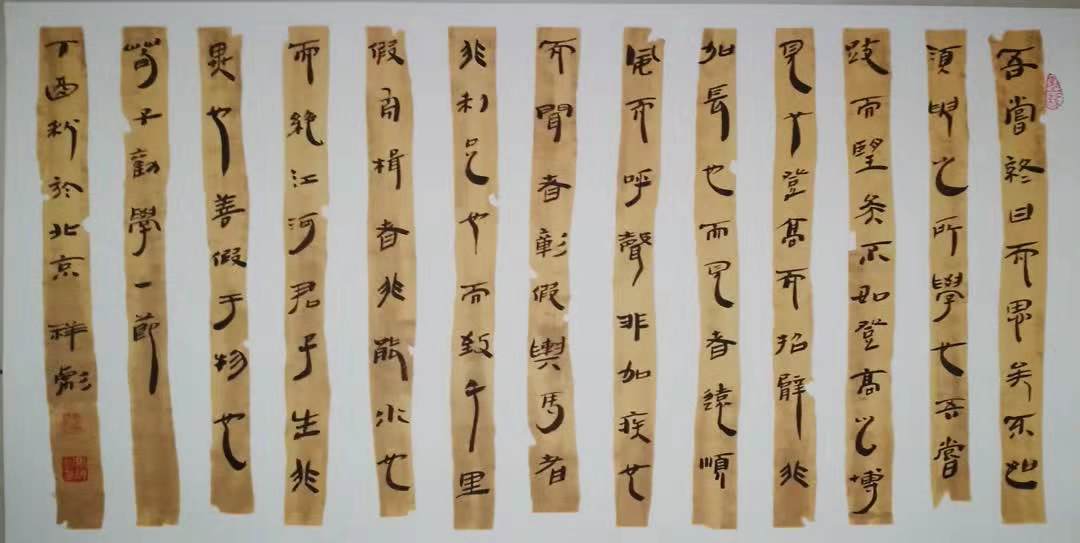 吾嘗終日而思矣不如
須臾之所學也吾嘗
跂而望矣不如登高之博
見也登高而招臂非
加長也而見者遠順
風而呼聲非加疾也
而聞者彰假輿馬者
非利足也而致千里
假舟楫者非能水也
而絕江河君子生非
異也善假于物也
荀子勸學一節
丁酉秋於北京 祥彪